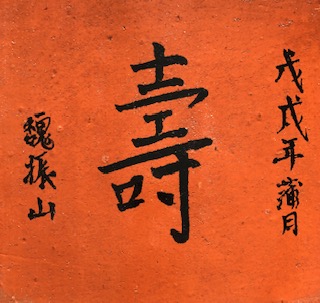 戊戌年蒲月
壽
魏振山